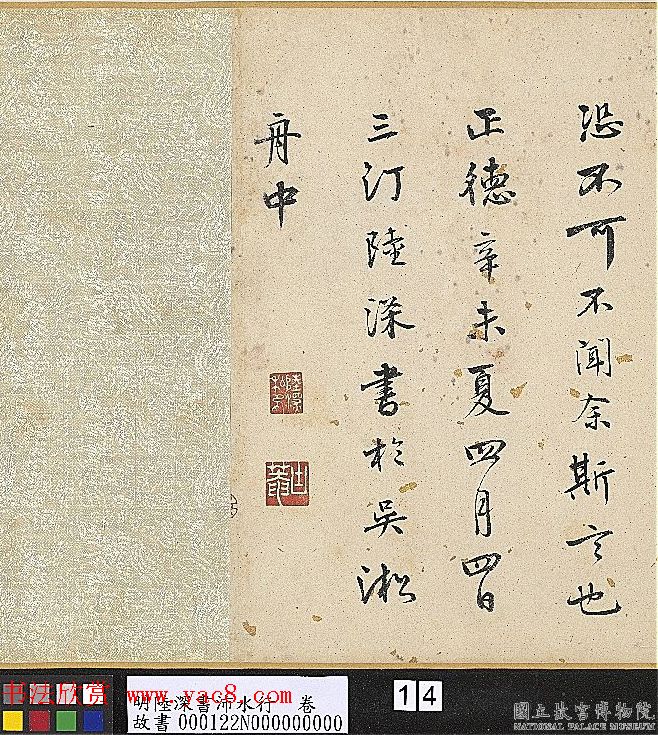 恐不可不闻余斯言也
正德辛未夏四月四日
三汀陸深書於吴淞
舟中
书法欣赏 www.yac8.com
明陸深書沛水行 卷
故書 000122N000000000
14
國立故宮博物院
NATIONAL PALACE MUSEUM